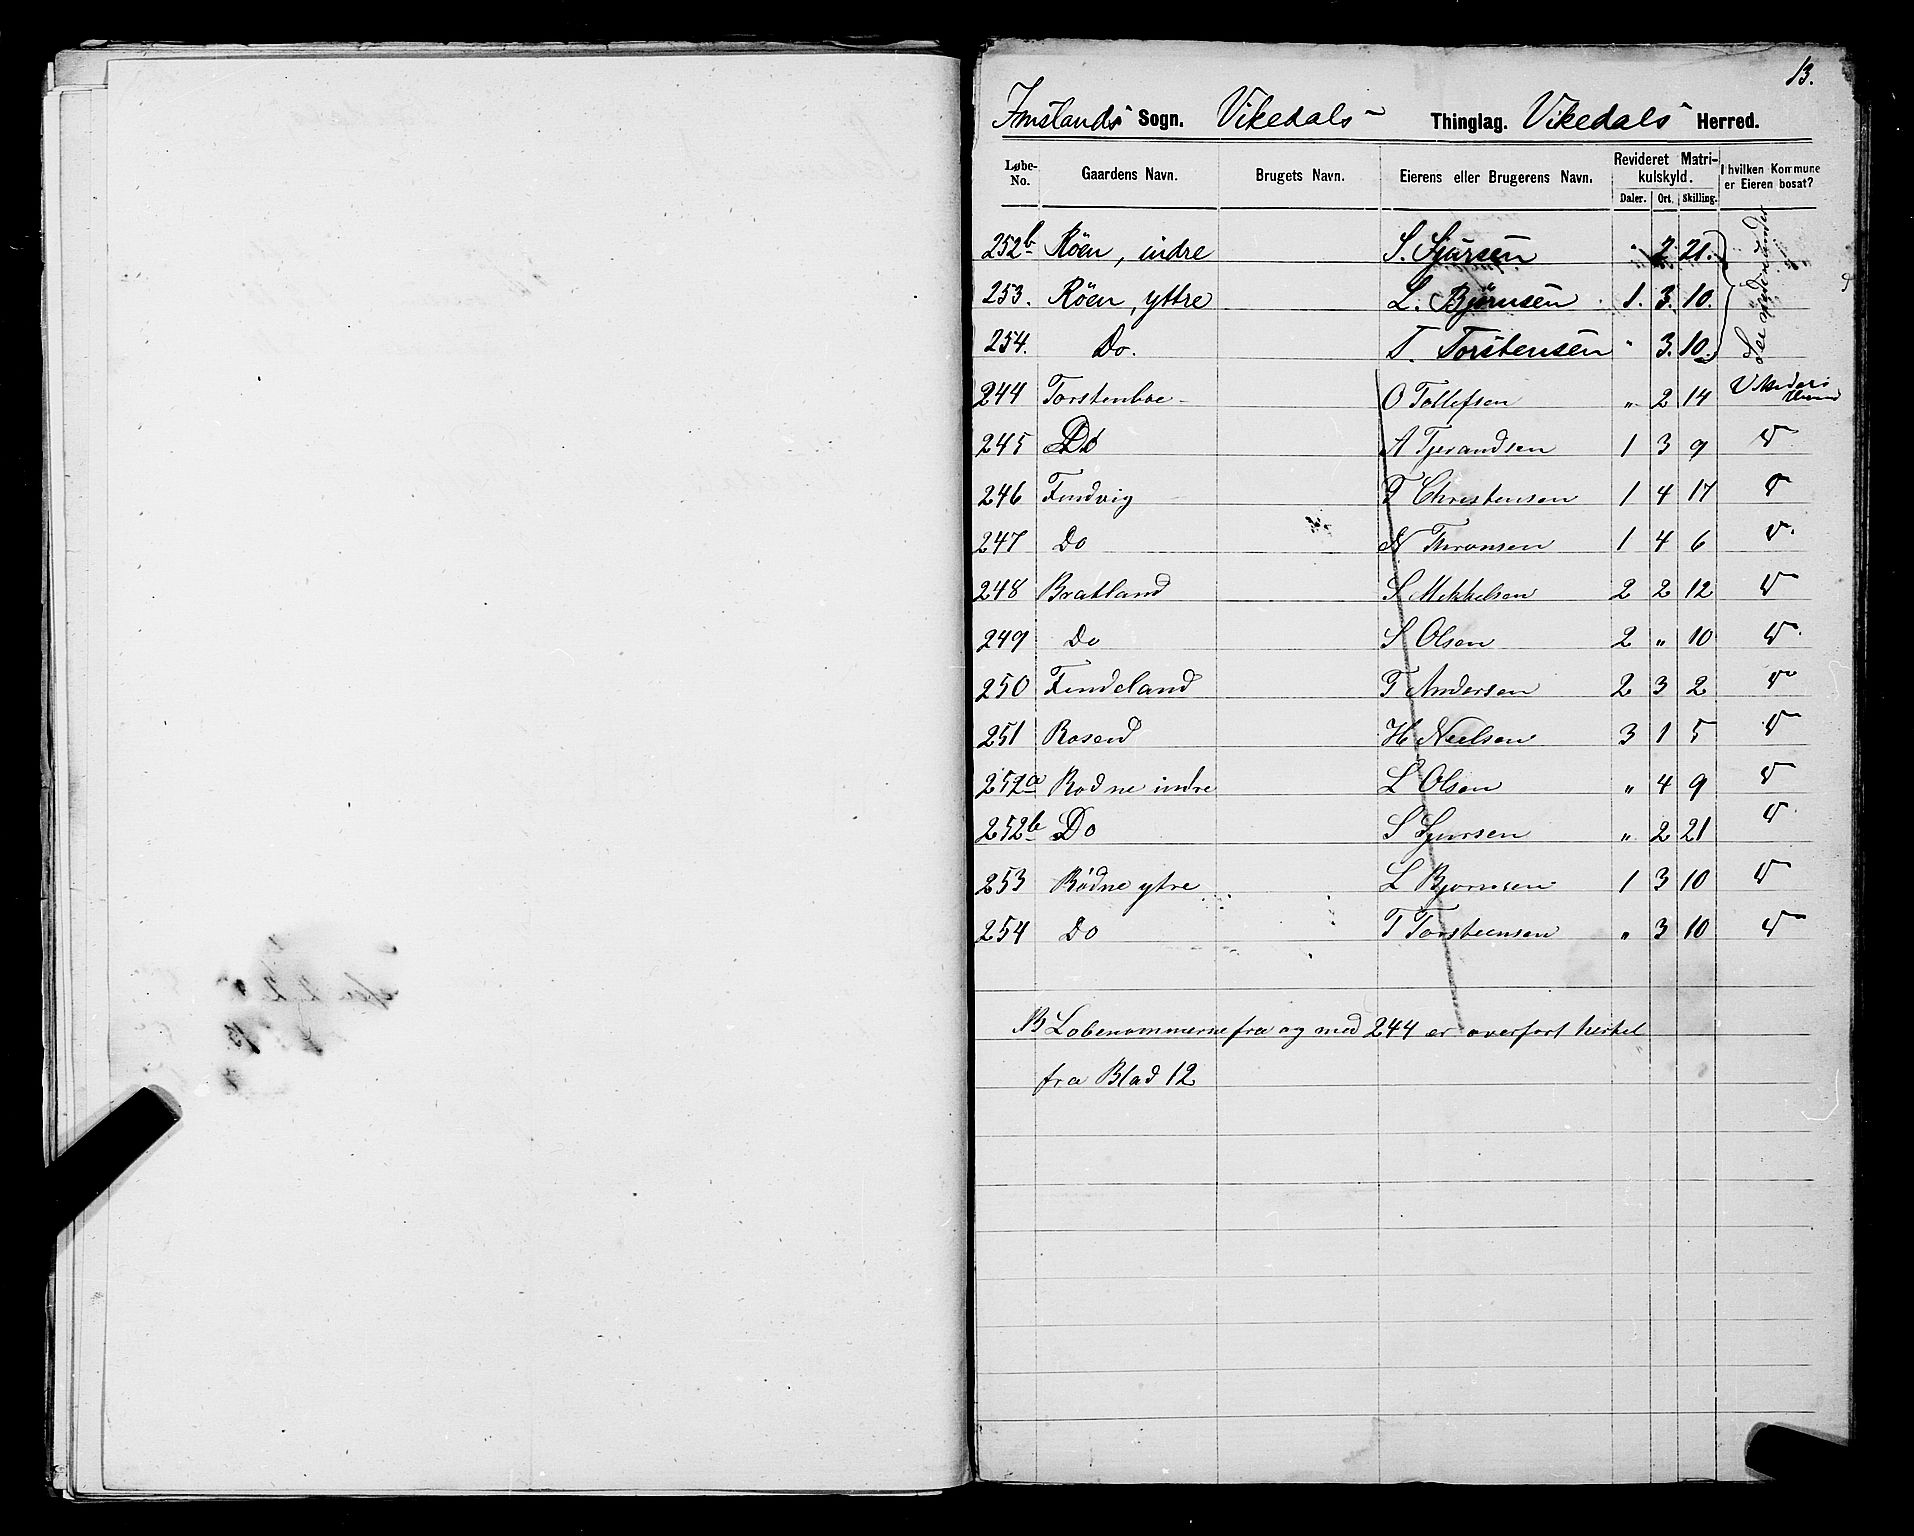 13.
Imslands Sogn. Vikedals Thinglag. Vikedals Herred.
Løbe-No. Gaardens Navn. Brugets Navn. Eierens eller Brugerens Navn. Revideret Matrikulskyld. I hvilken Kommune er Eieren bosat?
Daler. Ort. Skilling.
252b Röen, indre S. Sjursen " 2. 21.
253. Röen, yttre L. Bjørnsen 1. 3. 10.
254. Do. T. Torstensen " 3. 10.
244 Torstenboe O Tollefsen " 2 14 Vikedals
245 Do A Tjerandsen 1 3 9 "
246 Findvig T Christensen 1 4 17 "
247 Do N Thronsen 1 4 6 "
248 Bratland S Mikkelsen 2 2 12 "
249 Do S Olsen 2 " 10 "
250 Findeland T Andersen 2 3 2 "
251 Rosend H Neelsen 3 1 5 "
252a Rodne indre L Olsen " 4 9 "
252b Do S Sjursen " 2 21 "
253 Rödne ytre L Bjornsen 1 3 10 "
254 Do T Torsteensen " 3 10 "
NB Lobenommerne fra og med 244 er overfort hertel
fra Blad 12